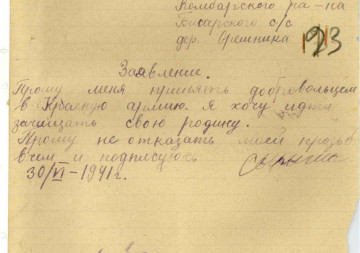 Камбарского ра-на
с/с
дер.
123
Заявление.
Прошу меня принять добровольцем
в Красную армию. Я хочу идти
защищать свою родину.
Прошу не отказать моей прозьб
в чем и подписуюсь
30/VI-1941г.